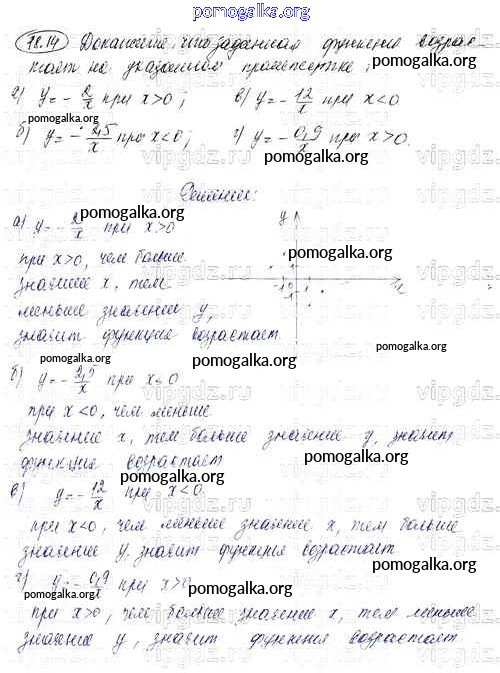 pomogalka.org
18.14 Докажите, что заданная функция возрас-
тает на указанном промежутке:
pomogalka.org
а) y = - 2/x при x>0; в) y = - 12/x при x<0
pomogalka.org
б) y = - 2,5/x при x<0; г) y = - 0,9/x при x>0.
pomogalka.org
vipgdz.ru
Решение:
pomogalka.org
а) y = - 2/x при x>0
y
при x>0, чем больше
значение x, тем
-1 0 1 x
-1
меньше значение y,
pomogalka.org
значит функция возрастает
pomogalka.org
pomogalka.org
pomogalka.org
б) y = - 2,5/x при x<0
при x<0, чем меньше
pomogalka.org
значение x, тем больше значение y, значит
функция возрастает
pomogalka.org
pomogalka.org
в) y = - 12/x при x<0
при x<0, чем меньше значение x, тем больше
значение y, значит функция возрастает
pomogalka.org
г) y = - 0,9/x при x>0
pomogalka.org
pomogalka.org
при x>0, чем больше значение x, тем меньшее
значение y, значит функция возрастает